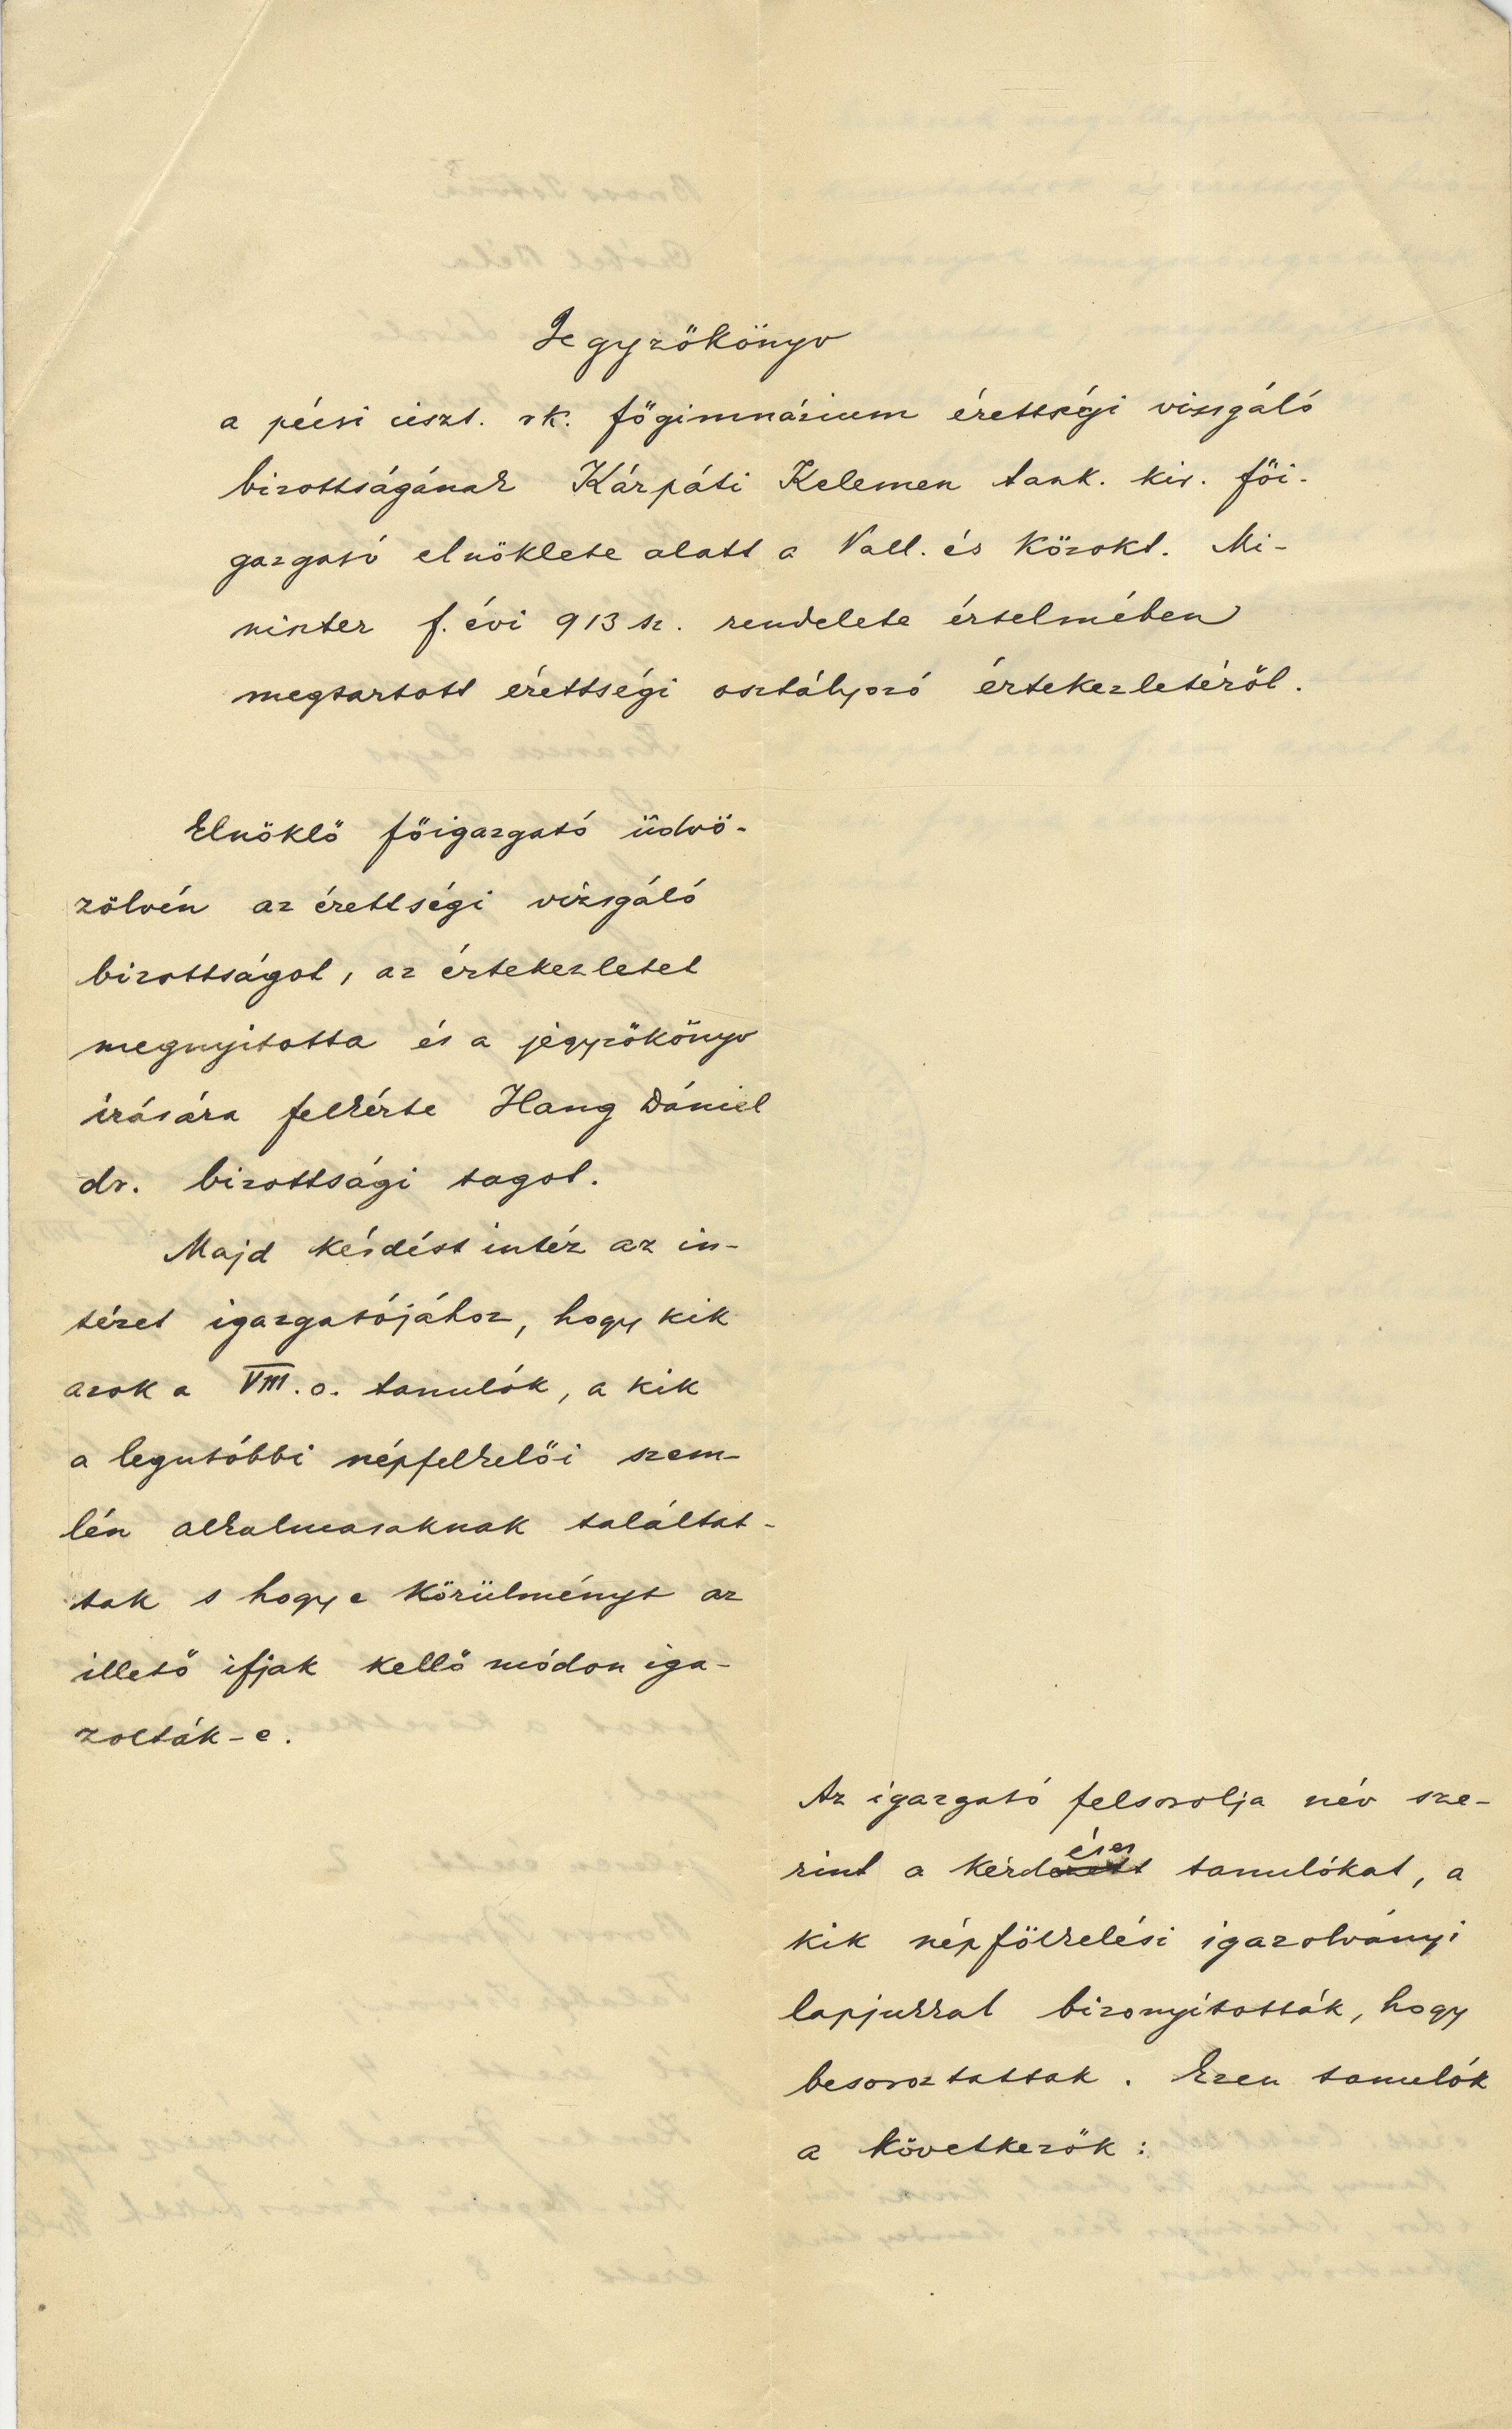 Jegyzőkönyv
a pécsi ciszt. rk. főgimnázium érettségi vizsgáló
bizottságának Kárpáti Kelemen tank. kir. fői-
gazgató elnöklete alatt a Vall. és Közokt. Mi-
niszter f. évi 913 sz. rendelete értelmében
megtartott érettségi osztályozó értekezletéről.
Elnöklő főigazgató üdvö-
zölvén az érettségi vizsgáló
bizottságot, az értekezletet
megnyitotta és a jegyzőkönyv
írására felkérte Hang Dániel
dr. bizottsági tagot.
Majd kérdést intéz az in-
tézet igazgatójához, hogy kik
azok a VIII. o. tanulók, a kik
a legutóbbi népfelkelői szem-
lén alkalmasaknak találtat-
tak s hogy e körülményt az
illető ifjak kellő módon iga-
zolták-e.
Az igazgató felsorolja név sze-
rint a kérdéses tanulókat, a
kik népfölkelési igazolványi
lapjukkal bizonyították, hogy
besoroztattak. Ezen tanulók
a következők: